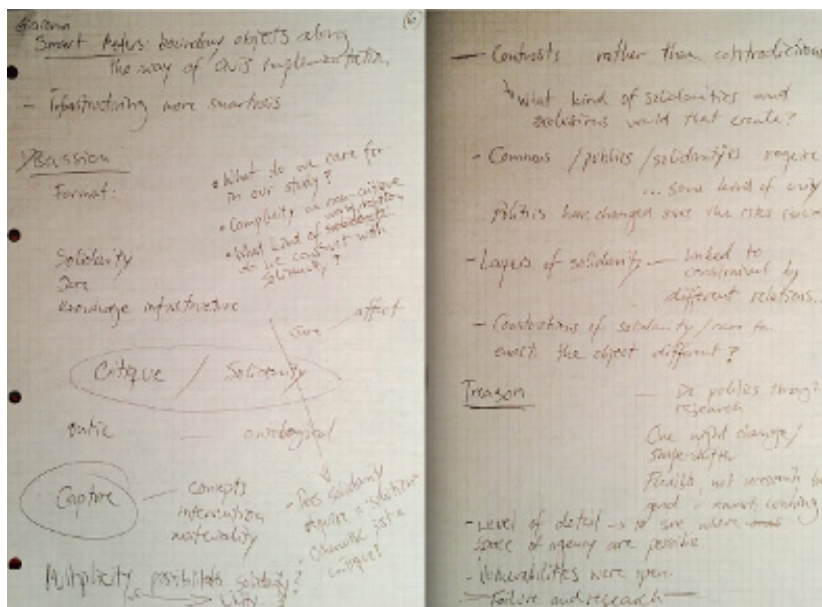 Smart Meters: boundary objects along
the way of implementation
- Infrastructuring more smartness
Discussion
Format:
• What do we care for
in our study?
• Complicity as non-critique
• What kind of
do we construct with
solidarity?
Solidarity
Care
Knowledge infrastructure
Care — affect
Critique / Solidarity
ontic — ontological
Capture — concepts
intervention
materiality
- Does solidarity
require a
Otherwise just a
critique?
Multiplicity possibilities solidarity?
Unity ?
— Contrasts rather than contradictions
What kind of solidarities and
exclusions would that create?
- Commons / publics / solidarities require
... some kind of unity
Politics have changed
- Layers of solidarity — linked to
constrained by
different relations...
- Constructions of solidarity / care for
enact the object different?
Treason
— Do politics through
research
One might change /
shape-shifter
Flexible, not
good
- Level of detail → to see where
space of agency are possible.
- Vulnerabilities were open.
Failure and research